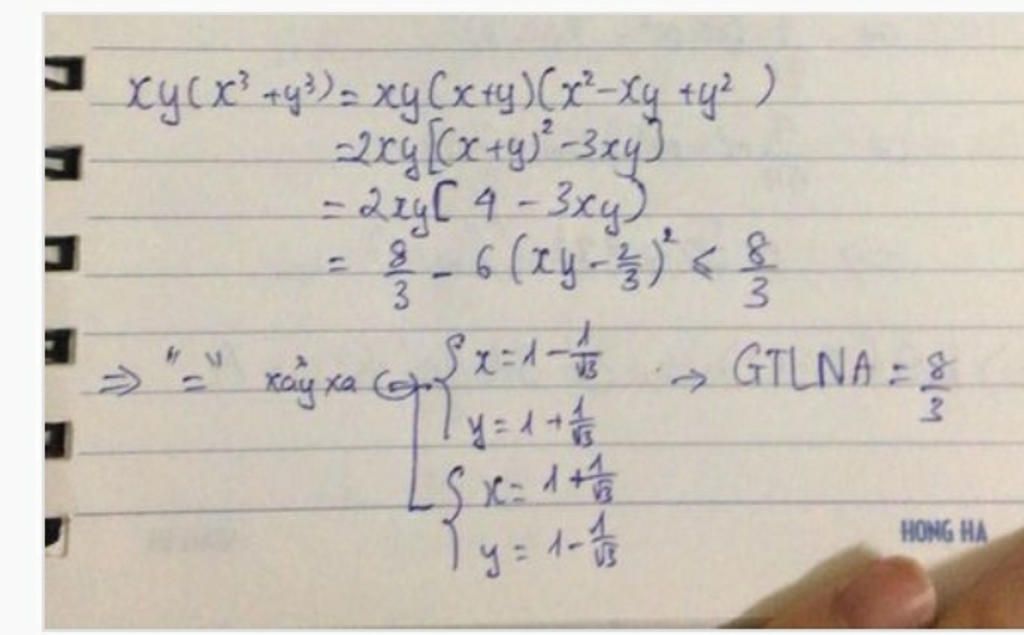 xy(x³+y³) = xy(x+y)(x²-xy+y²)
=2xy[(x+y)²-3xy]
= 2xy[4-3xy)
= 8/3 - 6(xy-2/3)² ≤ 8/3
⇒ "=" xảy xa ⇔ { x=1-1/√3 → GTLNA = 8/3
y=1+1/√3
{ x=1+1/√3
y=1-1/√3
HONG HA